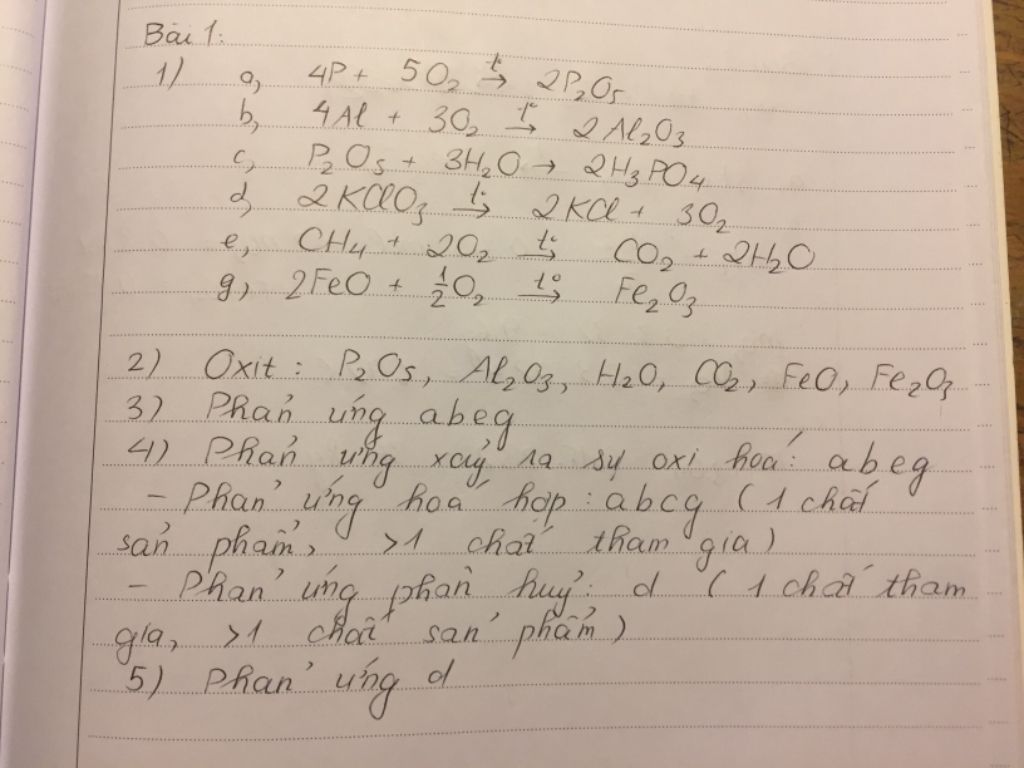 Bài 1:
1) a, 4P + 5O₂ t°→ 2P₂O₅
b, 4Al + 3O₂ t°→ 2Al₂O₃
c, P₂O₅ + 3H₂O → 2H₃PO₄
d, 2KClO₃ t°→ 2KCl + 3O₂
e, CH₄ + 2O₂ t°→ CO₂ + 2H₂O
g, 2FeO + ½O₂ t°→ Fe₂O₃
2) Oxit : P₂O₅, Al₂O₃, H₂O, CO₂, FeO, Fe₂O₃
3) Phản ứng abeg
4) Phản ứng xảy ra sự oxi hoá: abeg
– Phản ứng hoá hợp : abcg ( 1 chất
sản phẩm, >1 chất tham gia )
– Phản ứng phân huỷ: d ( 1 chất tham
gia, >1 chất sản phẩm )
5) Phản ứng d